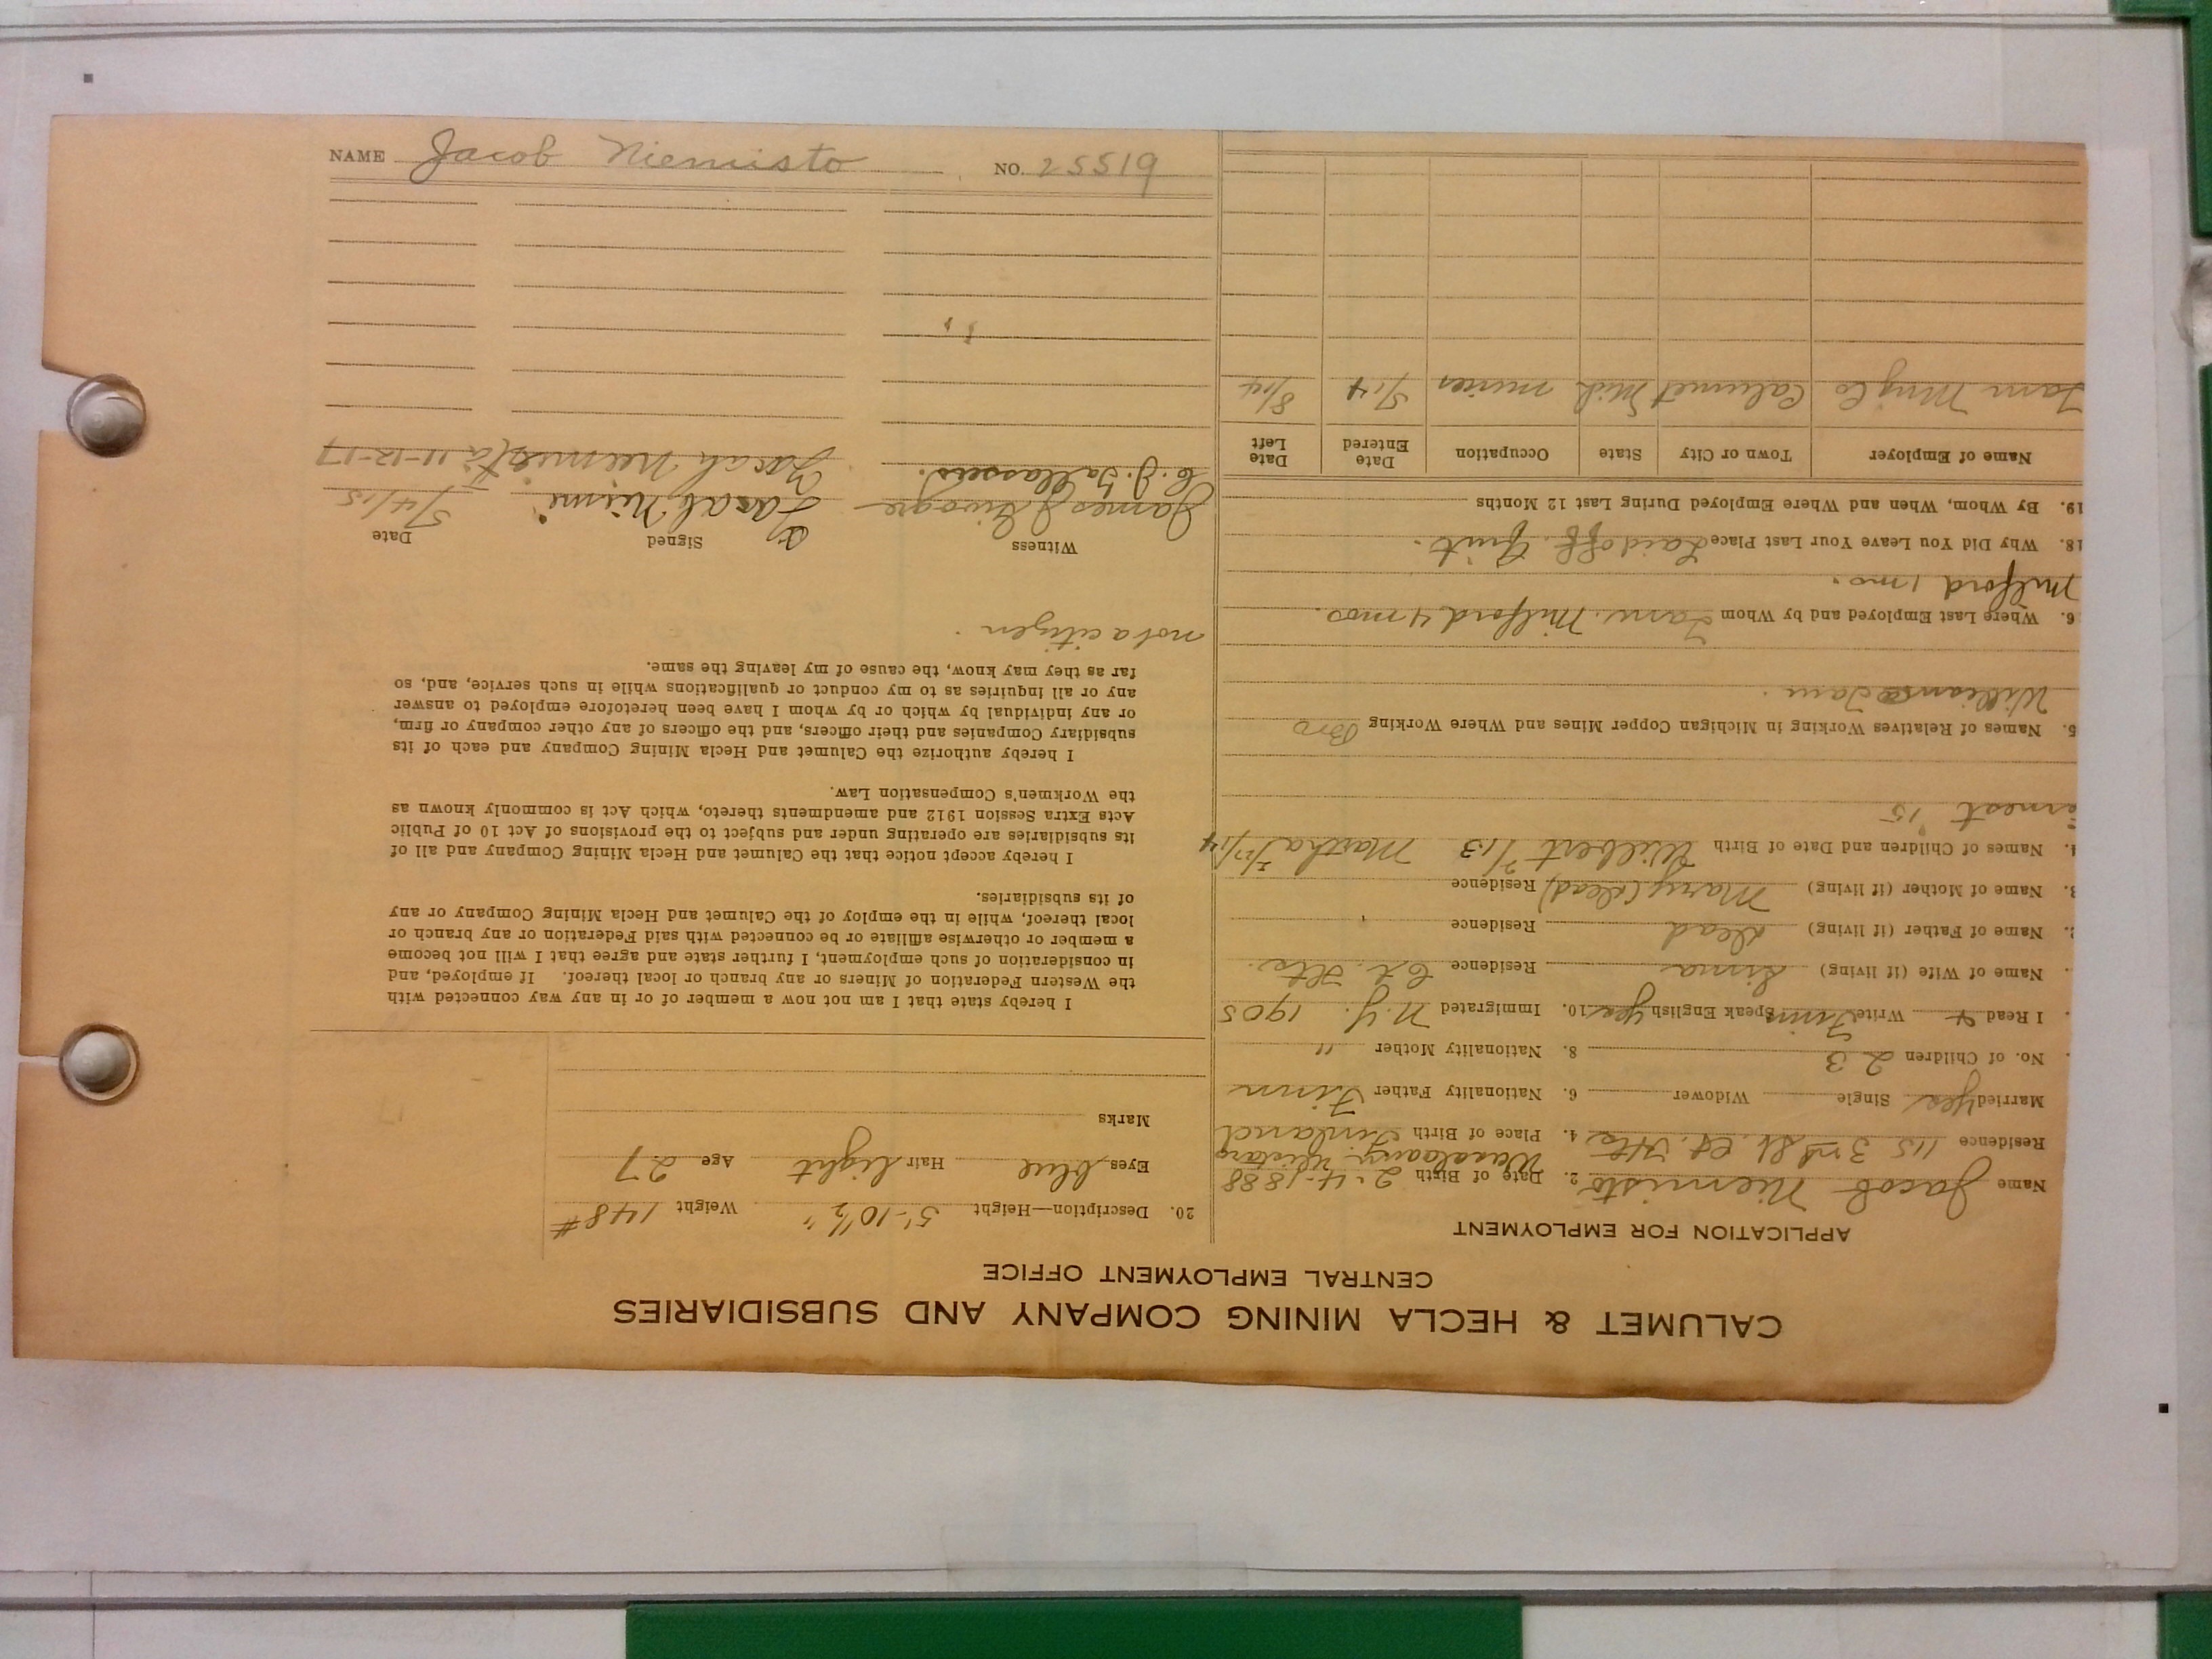 CALUMET & HECLA MINING COMPANY AND SUBSIDIARIES
CENTRAL EMPLOYMENT OFFICE
APPLICATION FOR EMPLOYMENT
Name Jacob Niemisto 2. Date of Birth 2-4-1888
Residence 115 3rd St. Cal. Hts 4. Place of Birth Finland
Married Yes Single Widower 6. Nationality Father Finn
No. of Children 2 3 8. Nationality Mother "
I Read Write Finn Speak English yes 10. Immigrated N.Y. 1905
Name of Wife (if living) Lima Residence Hts.
Name of Father (if living) dead Residence
3. Name of Mother (if living) Mary (dead) Residence
4. Names of Children and Date of Birth Wilbert Martha
ernest 15
5. Names of Relatives Working in Michigan Copper Mines and Where Working Bro
William
6. Where Last Employed and by Whom Milford 4 mos.
Milford 1 mo.
18. Why Did You Leave Your Last Place Laid off. Quit.
19. By Whom, When and Where Employed During Last 12 Months
Name of Employer Town or City State Occupation Date Entered Date Left
Tam Mng Co Calumet Mich miner 5/14 8/14
20. Description—Height 5'-10½" Weight 148#
Eyes blue Hair light Age 27
Marks
I hereby state that I am not now a member of or in any way connected with
the Western Federation of Miners or any branch or local thereof. If employed, and
in consideration of such employment, I further state and agree that I will not become
a member or otherwise affiliate or be connected with said Federation or any branch or
local thereof, while in the employ of the Calumet and Hecla Mining Company or any
of its subsidiaries.
I hereby accept notice that the Calumet and Hecla Mining Company and all of
its subsidiaries are operating under and subject to the provisions of Act 10 of Public
Acts Extra Session 1912 and amendments thereto, which Act is commonly known as
the Workmen's Compensation Law.
I hereby authorize the Calumet and Hecla Mining Company and each of its
subsidiary Companies and their officers, and the officers of any other company or firm,
or any individual by which or by whom I have been heretofore employed to answer
any or all inquiries as to my conduct or qualifications while in such service, and, so
far as they may know, the cause of my leaving the same.
not a citizen.
Witness Signed Date
James Jacob Niemi 5/4/15
Jacob Niemista 11-12-17
NAME Jacob Niemisto NO. 25519